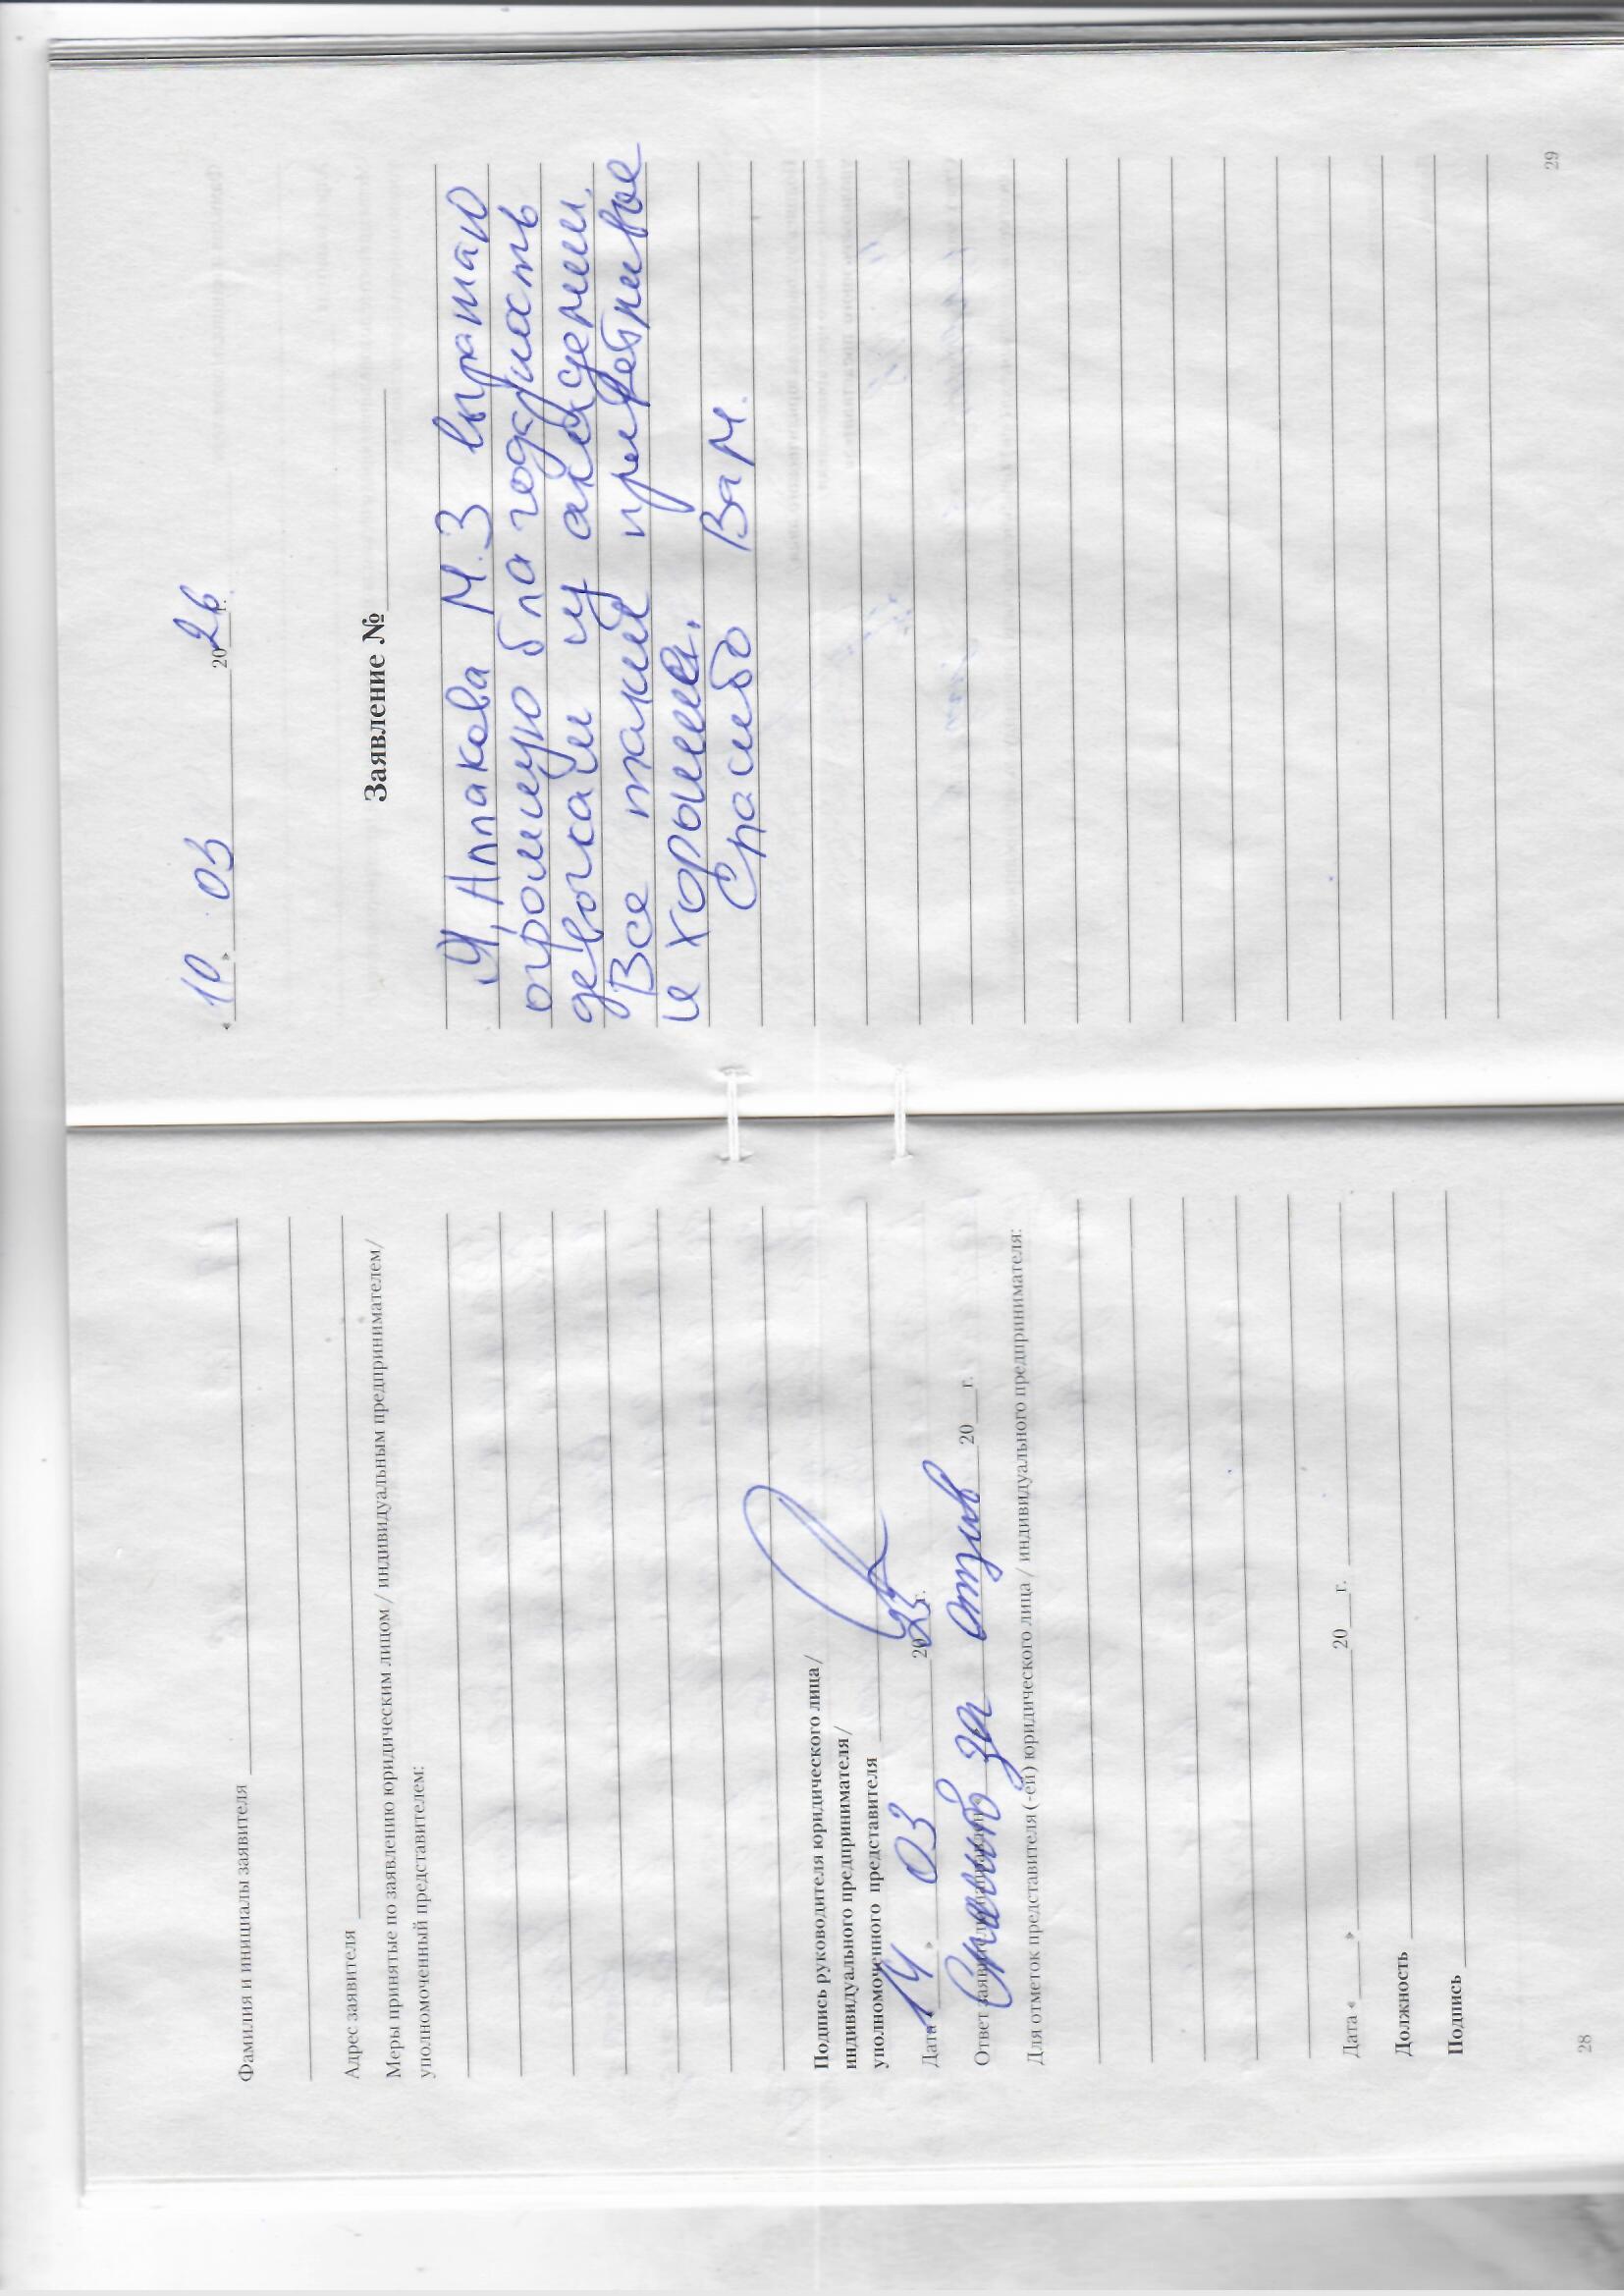 Фамилия и инициалы заявителя
Адрес заявителя
Меры принятые по заявлению юридическим лицом / индивидуальным предпринимателем/
уполномоченный представителем:
Подпись руководителя юридического лица /
индивидуального предпринимателя/
уполномоченного представителя
Дата « 14 » 03 20 г.
Ответ заявителю
Спасибо за отзыв 20 г.
Для отметок представителя (-ей) юридического лица / индивидуального предпринимателя:
Дата « » 20 г.
Должность
Подпись
28
« 10 » 03 2026 г.
Заявление №
Я, Аппакова М.З выражаю
огромную благодарность
девочкам из
Все такие приветливые
и хорошие.
Спасибо Вам.
29